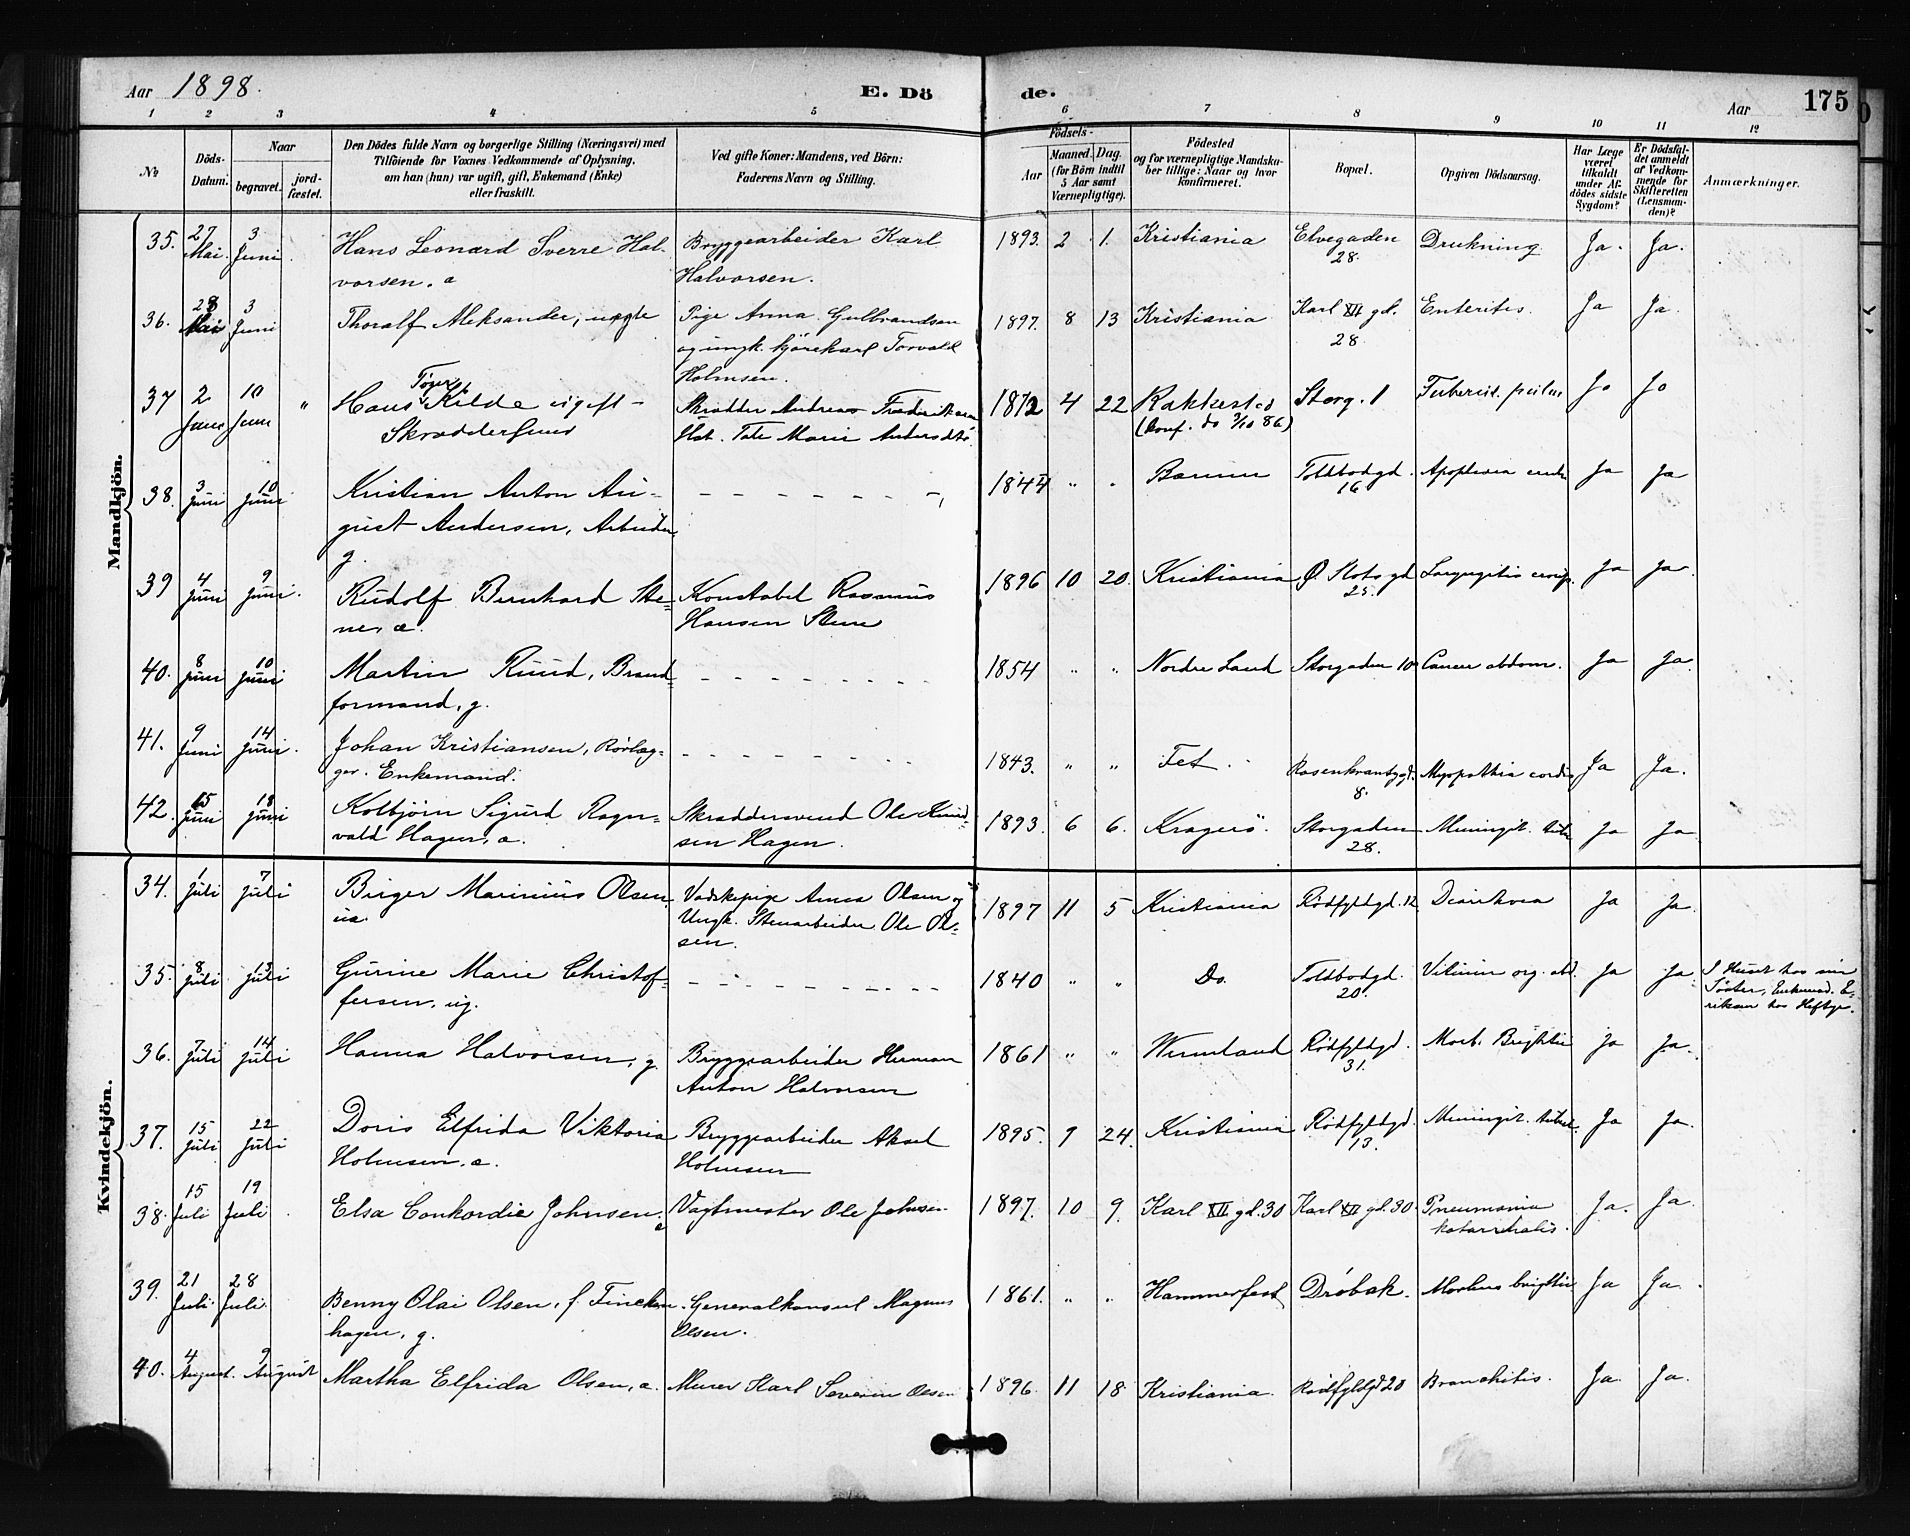 Aar 1898. E. Dö de. Aar 175
1 2 3 4 5 6 7 8 9 10 11 12
No
Döds-
Datum.
Naar
begravet.
jord-
fæstet.
Den Dödes fulde Navn og borgerlige Stilling (Næringsvei) med
Tilföiende for Voxnes Vedkommende af Oplysning,
om han (hun) var ugift, gift, Enkemand (Enke)
eller fraskilt.
Ved gifte Koner: Mandens, ved Börn:
Faderens Navn og Stilling.
Födsels-
Aar
Maaned. Dag.
(for Börn indtil
5 Aar samt
Værnepligtige).
Födested
og for værnepligtige Mandska-
ber tillige: Naar og hvor
konfirmeret.
Bopæl.
Opgiven Dödsaarsag.
Har Læge
været
tilkaldt
under Af-
dödes sidste
Sygdom?
Er Dödsfal-
det anmeldt
af Vedkom-
mende for
Skifteretten
(Lensman-
den)?
Anmærkninger.
Mandkjön.
35. 27 Mai. 3 Juni. Hans Leonard Sverre Hal-
vorsen. a
Bryggearbeider Karl
Halvorsen.
1893. 2 1. Kristiania Elvegaden
28.
Drukning Ja. Ja.
36. 28 Mai 3 Juni Thoralf Aleksander, uægte
Pige Anna Gulbrandsen
og ungk. kjørekarl Torvald
Holmsen.
1897. 8 13 Kristiania Karl XII gd.
28
Enteritis. Ja Ja.
37 2 Juni 10 Juni " Hans Kilde ugift -
Skræddersvend
Skrædder Andreas
1872 4 22 Rakkestad
(Konf. do 3/10 86)
Storg. 1 Ja Ja
38. 3 Juni 10 Juni Kristian Anton Au-
gust Andersen, Arbeider
g.
1844 " " Bærum Toldbodgd.
16
Apoplexia Ja Ja
39 4 Juni 9 Juni. Rudolf Bernhard Ste-
ne, a.
Konstabel Rasmus
Hansen Stene
1896 10 20. Kristiania Ø. Slotsgd
25.
Laryngitis croup. Ja Ja.
40. 8 Juni 10 Juni Martin Ruud, Brand-
formand, g.
1854 " " Nordre Land Storgaden 10 Cancer abdom. Ja Ja.
41. 9 Juni 14 Juni. Johan Kristiansen, Rørlæg-
ger. Enkemand.
1843. " " Fet. Rosenkrantzgd.
8.
Myopathia cordis Ja Ja.
42. 15 Juni 18 Juni Kolbjørn Sigurd Ragn-
vald Hagen, a.
Skræddersvend Ole Knud-
sen Hagen.
1893. 6 6. Kragerö. Storgaden
28.
Meningit. tub. Ja Ja
Kvindekjön.
34. 1 Juli 7 Juli Birger Marinius Olsen,
ua.
Vadskepige Anna Olsen og
Ungk. Stenarbeider Ole Ol-
sen.
1897 11 5 Kristiania Rødfyldgd. 12 Diarrhoea Ja Ja.
35. 8 Juli 13 Juli Gurine Marie Christof-
fersen, ug.
1840 " " Do. Toldbodgd.
20.
Vitium org. abd. Ja Ja.
I Huset hos sin
Søster, Enkemad. E-
riksen hos Heftye.
36. 7 Juli 14 Juli Hanna Halvorsen, g.
Bryggearbeider Herman
Anton Halvorsen
1861 " " Wermland Rødfyldgd.
31.
Morb. Brightii Ja Ja.
37. 15 Juli 22 Juli Doris Elfrida Viktoria
Holmsen. a.
Bryggearbeider Aksel
Holmsen
1895. 9 24. Kristiania Rødfyldgd.
13.
Meningit. tuberc. Ja Ja.
38. 15 Juli 19 Juli. Elsa Conkordia Johnsen.
a
Vagtmester Ole Johnsen
1897. 10 9. Karl XII gd. 30 Karl XII gd. 30. Pneumonia
katarrhalis.
Ja. Ja.
39. 21 Juli. 28 Juli. Benny Olai Olsen, f. Fincken-
hagen, g.
Generalkonsul Magnus
Olsen.
1861. " " Hammerfest Dröbak. Morbus brigthii Ja Ja.
40. 4 August. 9 August Martha Elfrida Olsen, a. Murer Karl Severin Olsen
1896. 11 18 Kristiania. Rødfyldgd 20 Bronchitis. Ja. Ja.